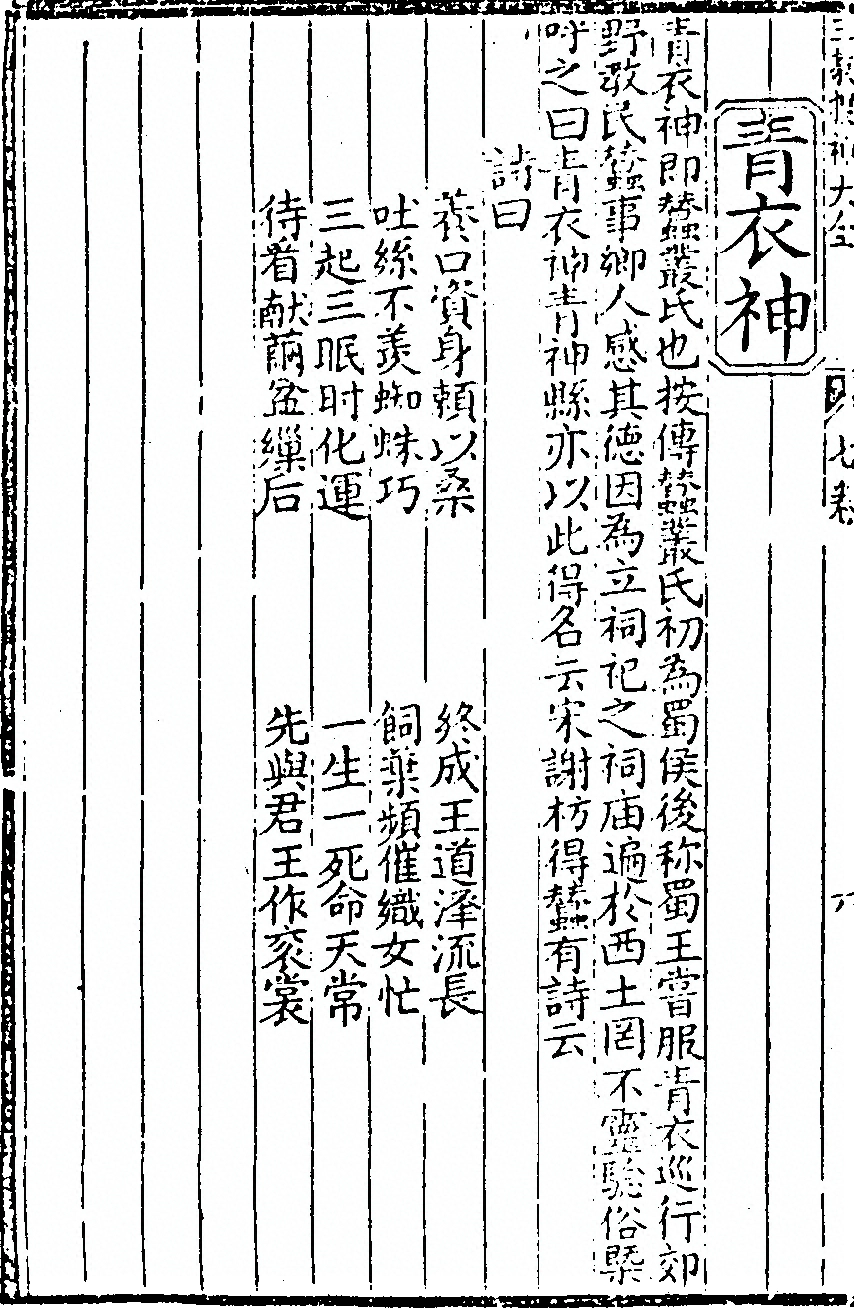 青衣神
青衣神即蠶叢氏也按傳蠶叢氏初為蜀侯後称蜀王嘗服青衣巡行郊
野教民蠶事鄉人感其德因為立祠祀之祠庙遍於西土罔不靈驗俗槩
呼之曰青衣神青神縣亦以此得名云宋謝枋得蠶有詩云
詩曰
養口資身頼以桑 終成王道澤流長
吐絲不羡蜘蛛巧 飼葉頻催織女忙
三起三眠时化運 一生一死命天常
待看献繭盆繅后 先與君王作衮裳
七卷